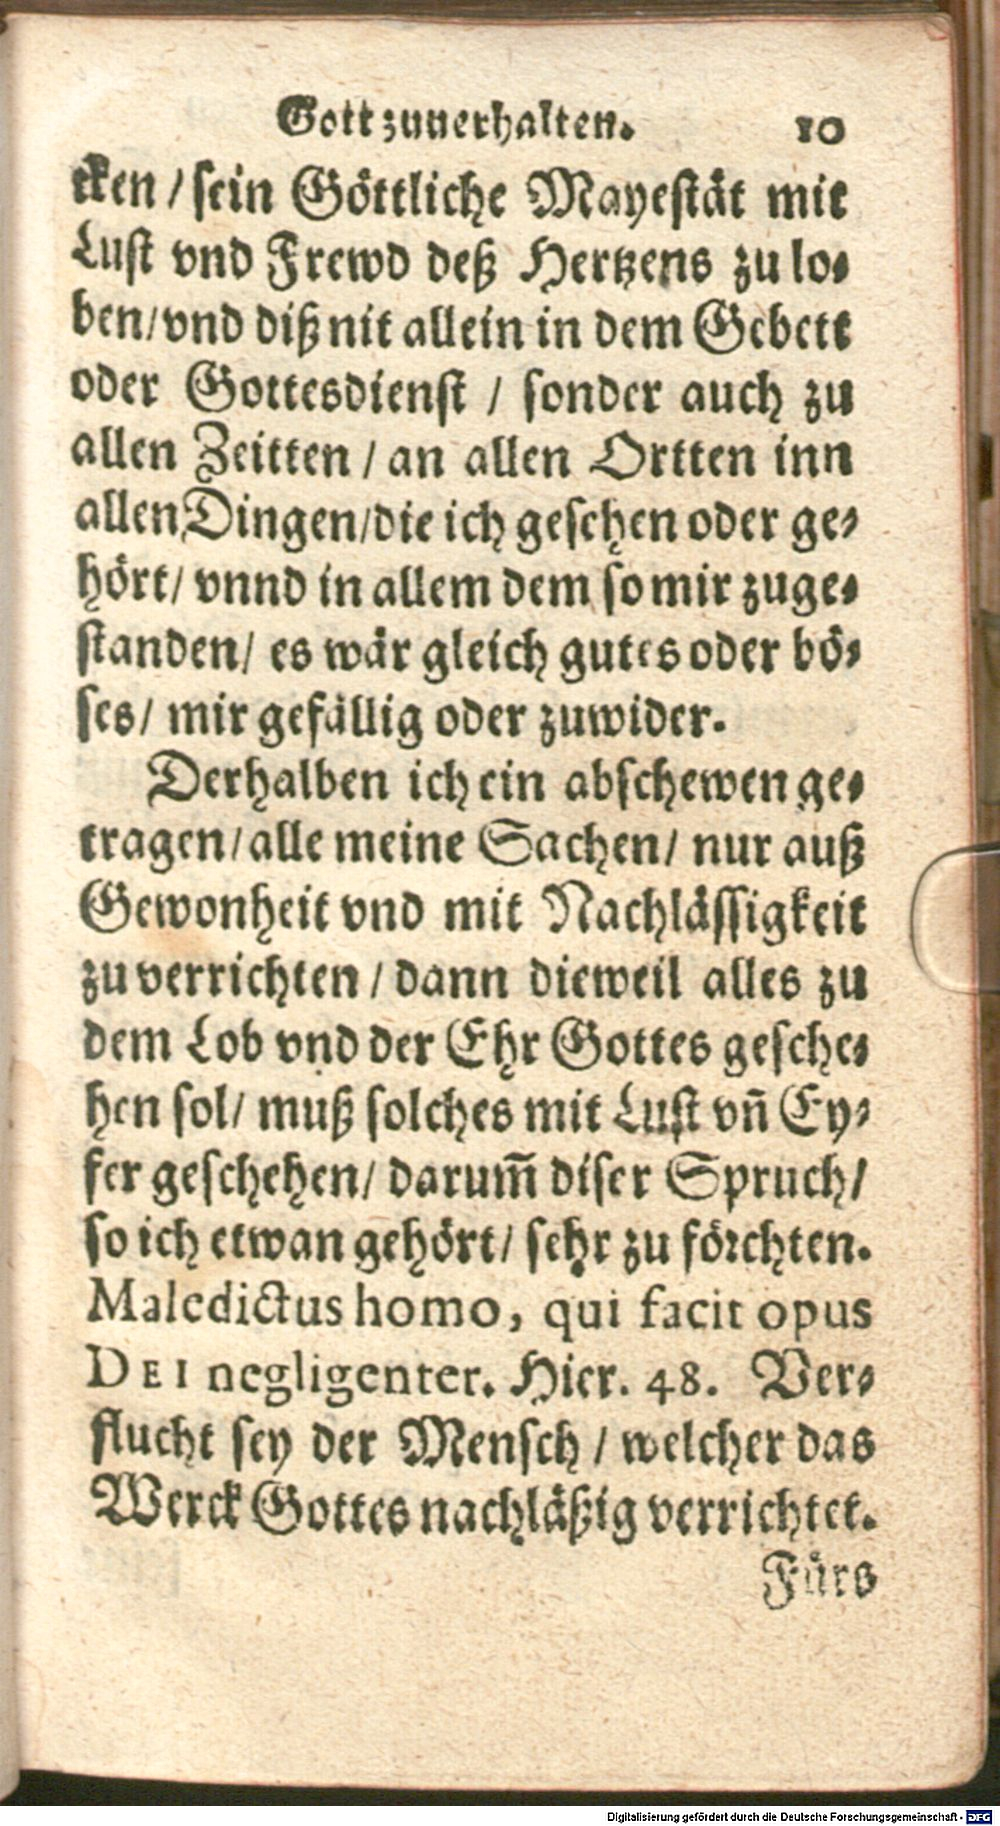 Gott zuuerhalten. 10
cken / sein Göttliche Mayestät mit
Lust vnd Frewd deß Hertzens zu lo-
ben / vnd diß nit allein in dem Gebett
oder Gottesdienst / sonder auch zu
allen Zeitten / an allen Ortten inn
allen Dingen / die ich gesehen oder ge-
hört / vnnd in allem dem so mir zuge-
standen / es wär gleich gutes oder bö-
ses / mir gefällig oder zuwider.
Derhalben ich ein abschewen ge-
tragen / alle meine Sachen / nur auß
Gewonheit vnd mit Nachlässigkeit
zu verrichten / dann dieweil alles zu
dem Lob vnd der Ehr Gottes gesche-
hen sol / muß solches mit Lust vñ Ey-
fer geschehen / darum̃ diser Spruch /
so ich etwan gehört / sehr zu förchten.
Maledictus homo, qui facit opus
DEI negligenter. Hier. 48. Ver-
flucht sey der Mensch / welcher das
Werck Gottes nachläßig verrichtet.
Fürs
Digitalisierung gefördert durch die Deutsche Forschungsgemeinschaft - DFG